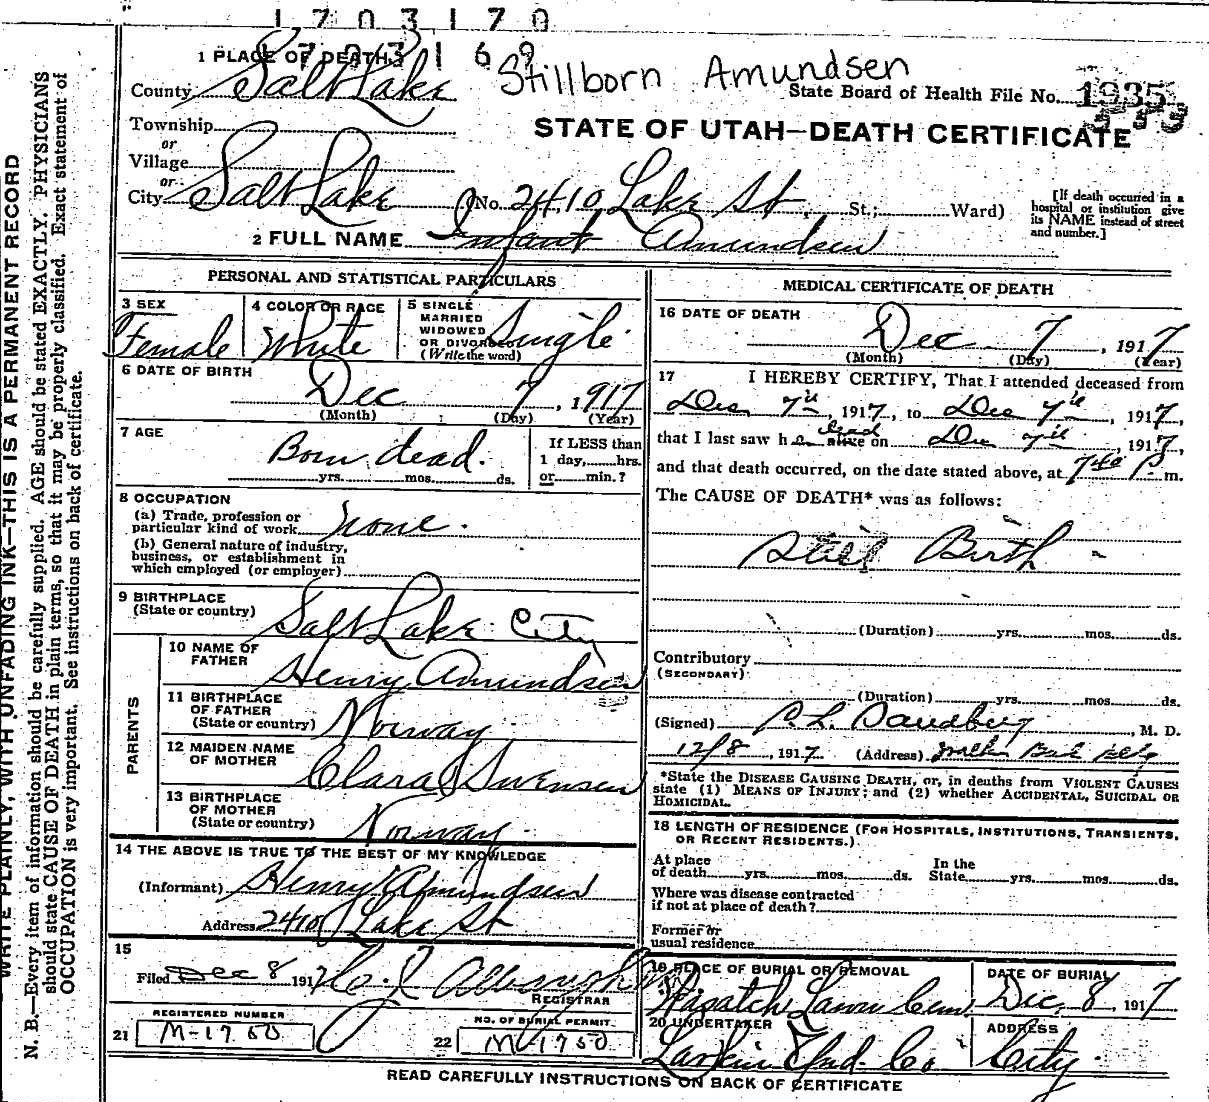 1703170
1703169
1 PLACE OF DEATH
Stillborn Amundsen
County Salt Lake
State Board of Health File No. 1935
Township
or
Village
or
City Salt Lake (No. 2410 Lake St. St.; Ward)
STATE OF UTAH—DEATH CERTIFICATE
[If death occurred in a
hospital or institution give
its NAME instead of street
and number.]
2 FULL NAME Infant Amundsen
PERSONAL AND STATISTICAL PARTICULARS
3 SEX
Female
4 COLOR OR RACE
White
5 SINGLE
MARRIED
WIDOWED
OR DIVORCED
(Write the word)
Single
6 DATE OF BIRTH
Dec 7, 1917
(Month) (Day) (Year)
7 AGE
Born dead.
yrs. mos. ds.
If LESS than
1 day, hrs.
or min.?
8 OCCUPATION
(a) Trade, profession or
particular kind of work None.
(b) General nature of industry,
business, or establishment in
which employed (or employer)
9 BIRTHPLACE
(State or country)
Salt Lake City
PARENTS
10 NAME OF
FATHER
Henry Amundsen
11 BIRTHPLACE
OF FATHER
(State or country)
Norway
12 MAIDEN NAME
OF MOTHER
Clara Swensen
13 BIRTHPLACE
OF MOTHER
(State or country)
Norway
14 THE ABOVE IS TRUE TO THE BEST OF MY KNOWLEDGE
(Informant) Henry Amundsen
Address 2410 Lake St
15
Filed Dec 8 1917
REGISTRAR
REGISTERED NUMBER
21 M-1750
NO. OF BURIAL PERMIT
22 M-1750
MEDICAL CERTIFICATE OF DEATH
16 DATE OF DEATH
Dec 7, 1917
(Month) (Day) (Year)
17 I HEREBY CERTIFY, That I attended deceased from
Dec 7th, 1917, to Dec 7th, 1917,
that I last saw h alive dead on Dec 7th, 1917,
and that death occurred, on the date stated above, at P m.
The CAUSE OF DEATH* was as follows:
Still Birth
(Duration) yrs. mos. ds.
Contributory
(SECONDARY)
(Duration) yrs. mos. ds.
(Signed) M. D.
12/8, 1917 (Address)
*State the DISEASE CAUSING DEATH, or, in deaths from VIOLENT CAUSES
state (1) MEANS OF INJURY; and (2) whether ACCIDENTAL, SUICIDAL OR
HOMICIDAL.
18 LENGTH OF RESIDENCE (FOR HOSPITALS, INSTITUTIONS, TRANSIENTS,
OR RECENT RESIDENTS.)
At place
of death yrs. mos. ds.
In the
State yrs. mos. ds.
Where was disease contracted
if not at place of death?
Former or
usual residence
19 PLACE OF BURIAL OR REMOVAL
Wasatch Lawn Cem.
DATE OF BURIAL
Dec. 8 1917
20 UNDERTAKER
Larkin Und. Co
ADDRESS
City.
READ CAREFULLY INSTRUCTIONS ON BACK OF CERTIFICATE
WRITE PLAINLY, WITH UNFADING INK—THIS IS A PERMANENT RECORD
N. B.—Every item of information should be carefully supplied. AGE should be stated EXACTLY. PHYSICIANS
should state CAUSE OF DEATH in plain terms, so that it may be properly classified. Exact statement of
OCCUPATION is very important. See instructions on back of certificate.